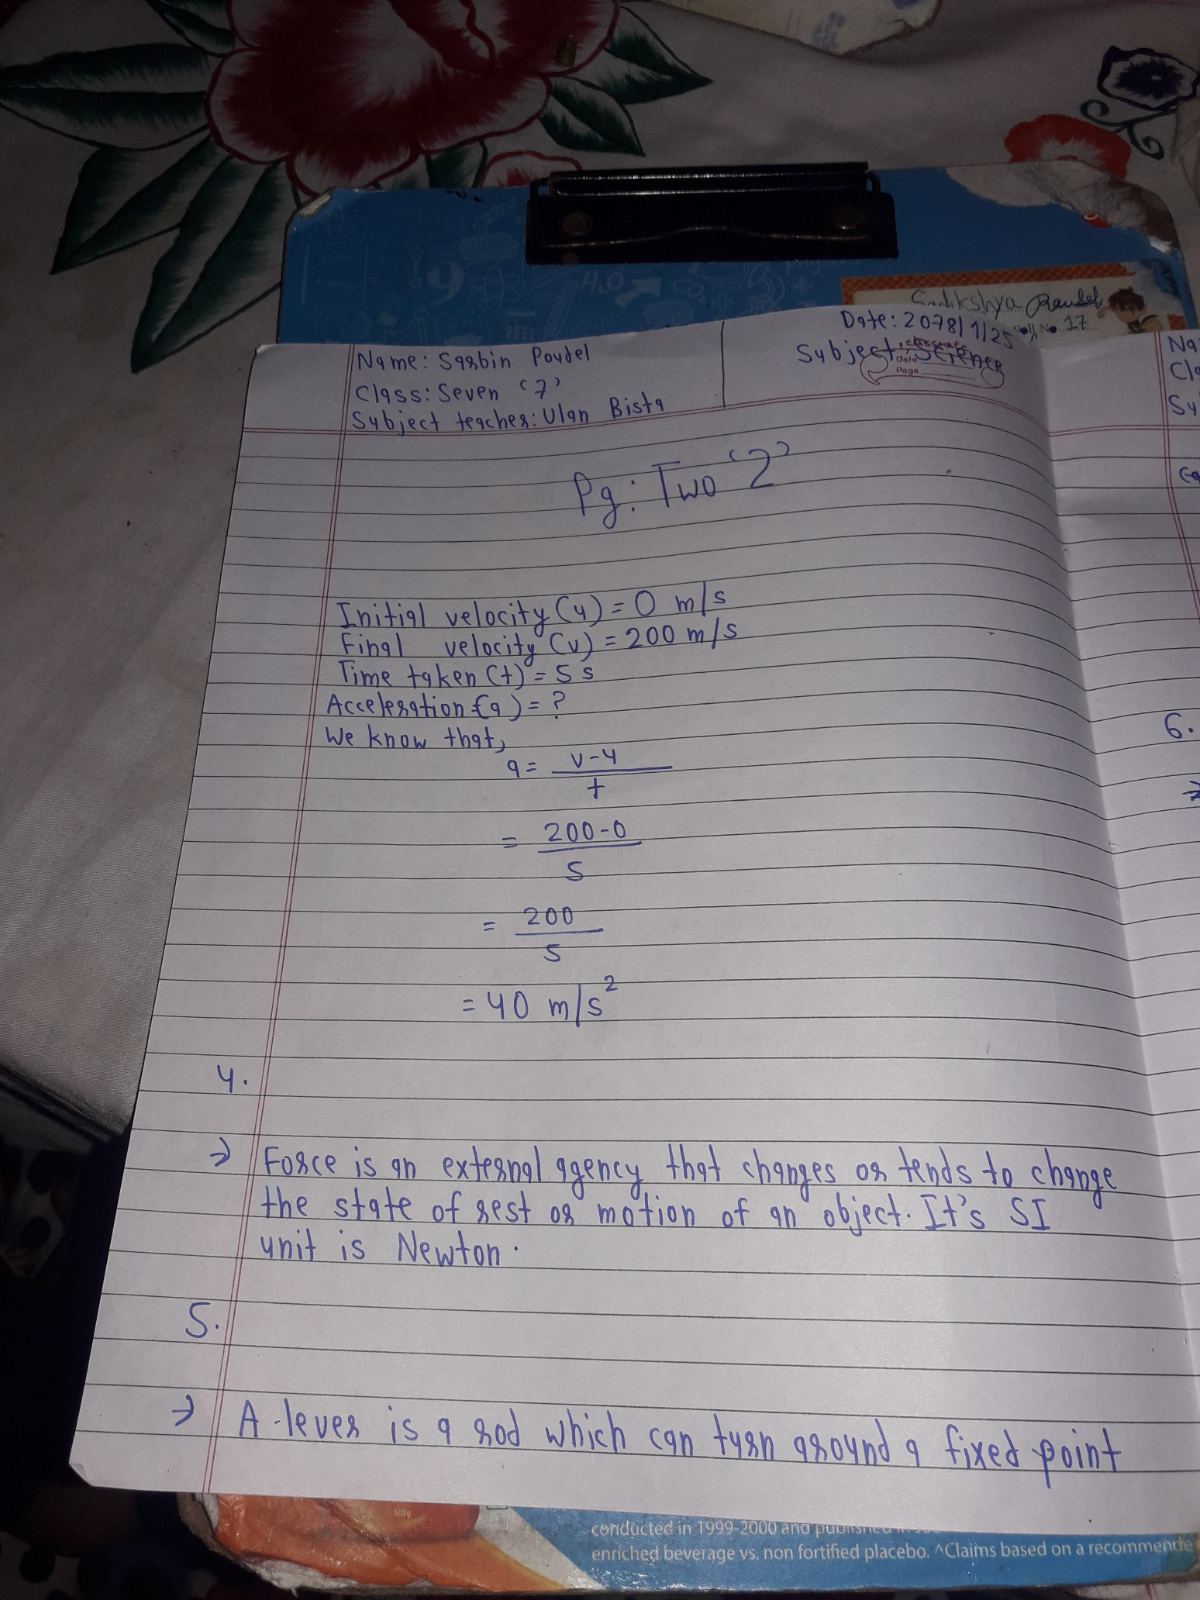 Sadikshya Poudel
Roll No. 17
Name: Sarbin Poudel
Date: 2078/1/25
Class: Seven '7'
Subject: Science
Subject teacher: Ulan Bista
classmate
Date
Page
Pg: Two '2'
Initial velocity (u) = 0 m/s
Final velocity (v) = 200 m/s
Time taken (t) = 5 s
Acceleration (a) = ?
We know that,
a = v-u
t
= 200-0
5
= 200
5
= 40 m/s²
4.
→ Force is an external agency that changes or tends to change
the state of rest or motion of an object. It's SI
unit is Newton.
5.
→ A lever is a rod which can turn around a fixed point
Na
Cla
Su
6.
→
9
H₂O
500g
conducted in 1999-2000 and
enriched beverage vs. non fortified placebo. ^Claims based on a recommende